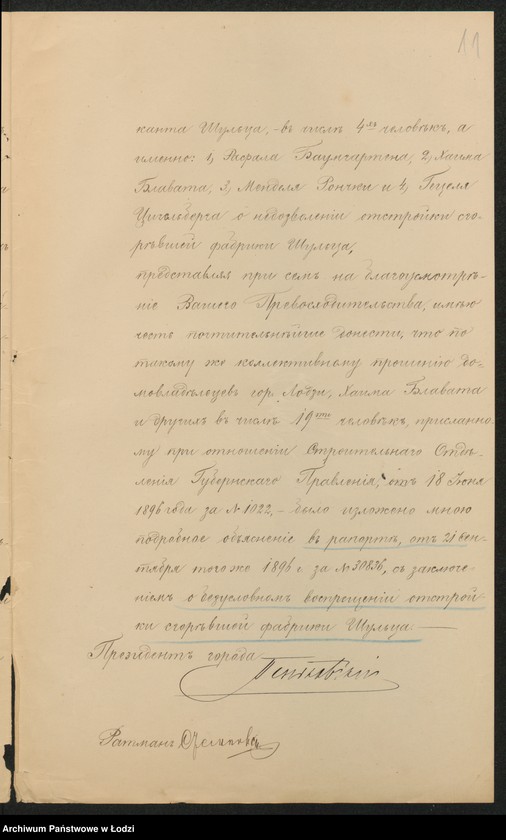 11
канта Шульца, - въ числѣ 4хъ человѣкъ, а
именно: 1, Рафала Баумгартена, 2, Хаима
Блавата, 3, Менделя Рончки и 4, Гецеля
о недозволеніи отстройки сго-
рѣвшей фабрики Шульца,
представляя при семъ на благоусмотрѣ-
ніе Вашего Превосходительства, имѣю
честь почтительнѣйше донести, что по
такому же коллективному прошенію до-
мовладѣльцевъ гор. Лодзи, Хаима Блавата
и другихъ въ числѣ 19ти человѣкъ, присланно-
му при отношеніи Строительнаго Отдѣ-
ленія Губернскаго Правленія, отъ 18 Іюня
1896 года за № 1022, - было изложено мною
подробное объясненіе въ рапортѣ, отъ 21 Сен-
тября того же 1896 г. за № 30836, съ заключе-
ніемъ о безусловномъ воспрещеніи отстрой-
ки сгорѣвшей фабрики Шульца. —
Президентъ города
Ратманъ
Archiwum Państwowe w Łodzi